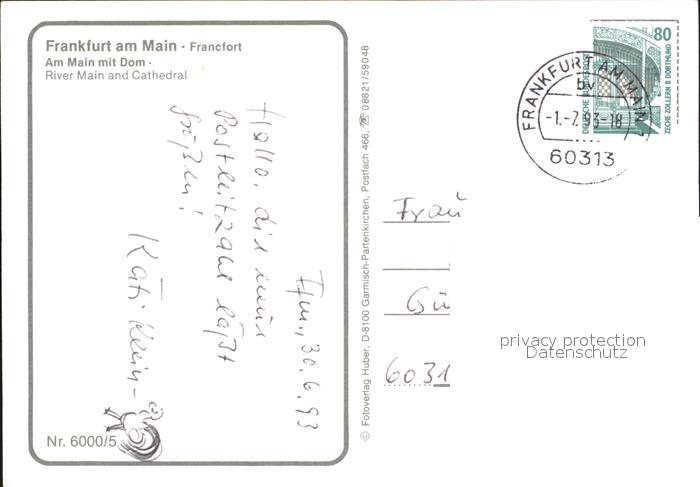 Frankfurt am Main · Francfort
Am Main mit Dom ·
River Main and Cathedral
Ffm., 30.6.93
Hallo, die neue
Postleitzahl läßt
grüßen!
Käti Klein-
Nr. 6000/5
© Fotoverlag Huber, D-8100 Garmisch-Partenkirchen, Postfach 466, ☎ 08821/59048
80
DEUTSCHE BUNDESPOST
ZECHE ZOLLERN II DORTMUND
FRANKFURT AM MAIN 1
bv
-1.-7.93-18
60313
Frau
Gü
6031
privacy protection
Datenschutz